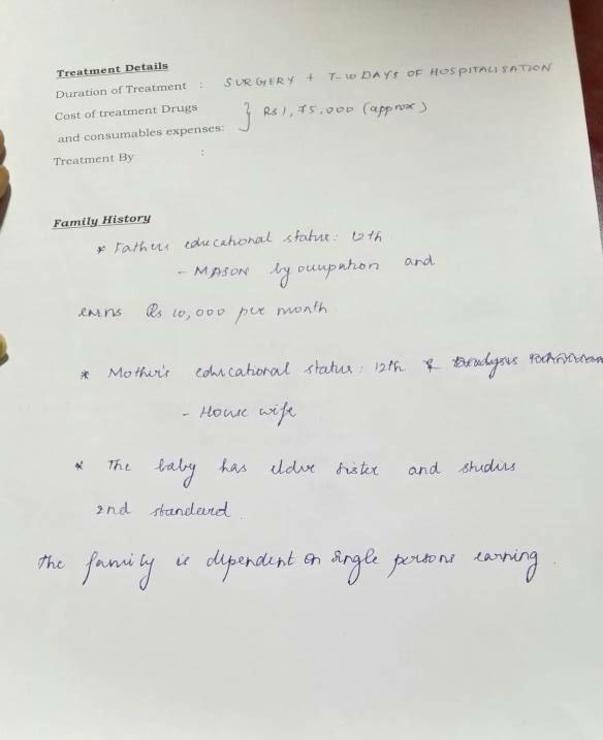 Treatment Details
Duration of Treatment : SURGERY + 7-10 DAYS OF HOSPITALISATION
Cost of treatment Drugs
and consumables expenses: } Rs 1,75,000 (approx)
Treatment By :
Family History
* Fathers educational status: 12th
- MASON by occupation and
earns Rs 10,000 per month
* Mother's educational status: 12th &
- House wife
* The baby has elder sister and studies
2nd standard.
The family is dependent on single persons earning.